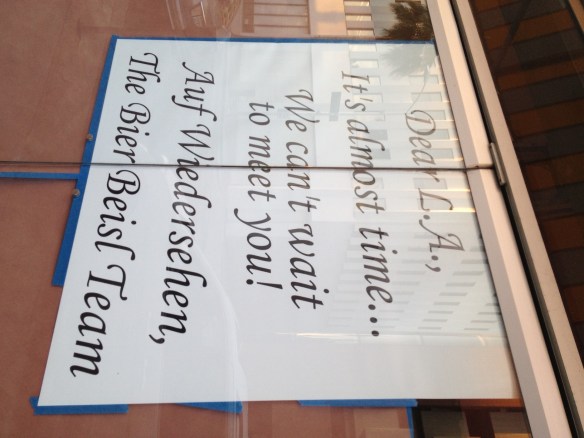 Dear L.A.,
It's almost time...
We can't wait
to meet you!
Auf Wiedersehen,
The Bier Beisl Team